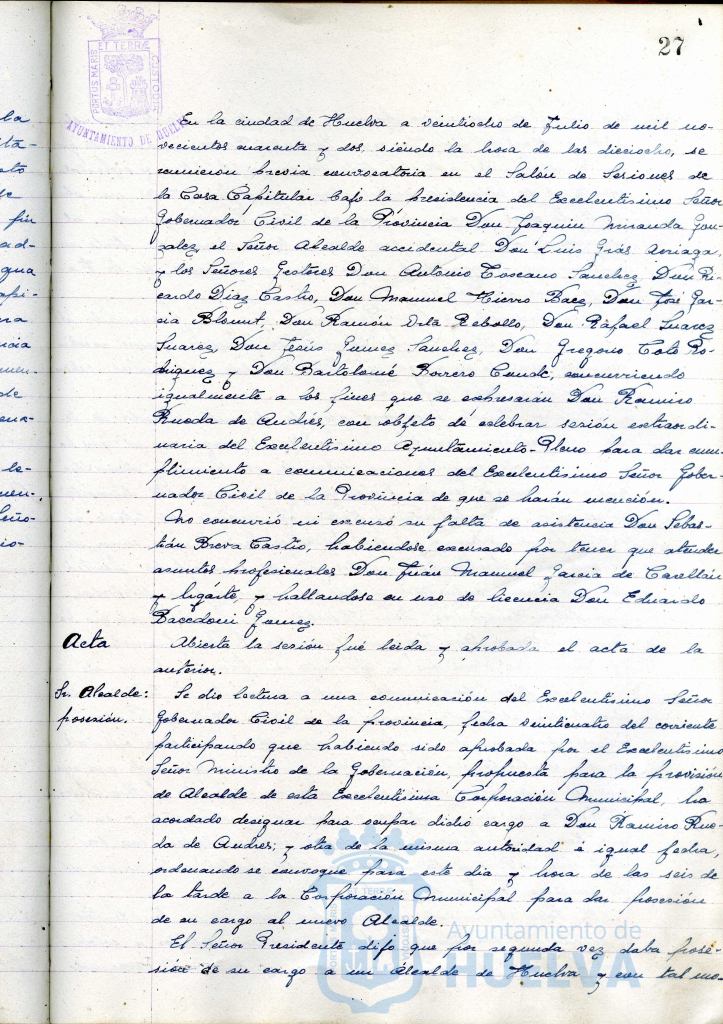 27
PORTUS MARIS ET TERRÆ CUSTODIA
AYUNTAMIENTO DE HUELVA
En la ciudad de Huelva a veintiocho de Julio de mil no-
vecientos cuarenta y dos, siendo la hora de las dieciocho, se
reunieron previa convocatoria en el Salón de Sesiones de
la Casa Capitular bajo la presidencia del Excelentísimo Señor
Gobernador Civil de la Provincia Don Joaquin Miranda Gon-
zalez, el Señor Alcalde accidental Don Luis Gras Arriaga,
y los Señores Gestores Don Antonio Toscano Sanchez, Don Ri-
cardo Diaz Castro, Don Manuel Hierro Baez, Don José Gar-
cia Blount, Don Ramón Orta Rebollo, Don Rafael Suarez
Suarez, Don Jesús Gomez Sanchez, Don Gregorio Toté Ro-
driguez y Don Bartolomé Borrero Conde, concurriendo
igualmente a los fines que se expresarán Don Ramiro
Rueda de Andrés, con objeto de celebrar sesión extraordi-
naria del Excelentísimo Ayuntamiento-Pleno para dar cum-
plimiento a comunicaciones del Excelentísimo Señor Gober-
nador Civil de la Provincia de que se harán mención.
No concurrió ni excusó su falta de asistencia Don Sebas-
tián Breva Castro, habiendose excusado por tener que atender
asuntos profesionales Don Juán Manuel Garcia de
y Ugarte, y hallandose en uso de licencia Don Eduardo
Gomez.
Acta
Abierta la sesión fué leida y aprobada el acta de la
anterior.
Sr. Alcalde:
posesión.
Se dio lectura a una comunicación del Excelentísimo Señor
Gobernador Civil de la provincia, fecha veinticuatro del corriente
participando que habiendo sido aprobada por el Excelentísimo
Señor Ministro de la Gobernación, propuesta para la provisión
de Alcalde de esta Excelentísima Corporación Municipal, ha
acordado designar para ocupar dicho cargo a Don Ramiro Rue-
da de Andrés; y otra de la misma autoridad é igual fecha,
ordenando se convoque para este dia y hora de las seis de
la tarde a la Corporación Municipal para dar posesión
de su cargo al nuevo Alcalde.
El Señor Presidente dijo que por segunda vez daba pose-
sión de su cargo a un Alcalde de Huelva y con tal mo-
Ayuntamiento de
HUELVA